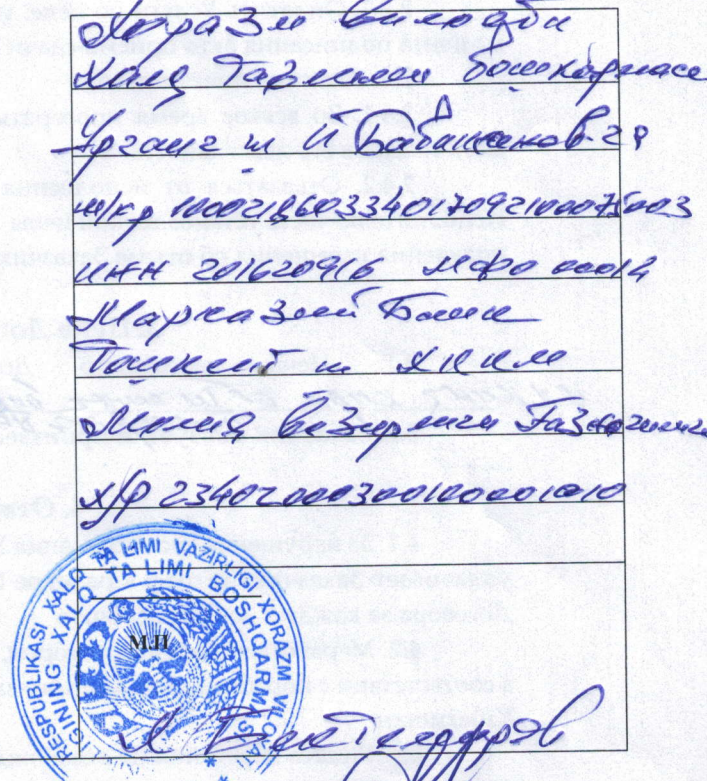 Хоразм вилояти
Халқ таълими бошқармаси
Урганч ш И. Бабажанов 28
ш/хр 100021860334017092100075003
ИНН 201620916 МФО 00014
Марказий Банк
Тошкент ш ХККМ
Молия вазирлиги Ғазначилиги
Х/Р 23402000300100001010
RESPUBLIKASI XALQ TA'LIMI VAZIRLIGI XORAZM VILOYATI
XALQ TA'LIMI BOSHQARMASI
М.П